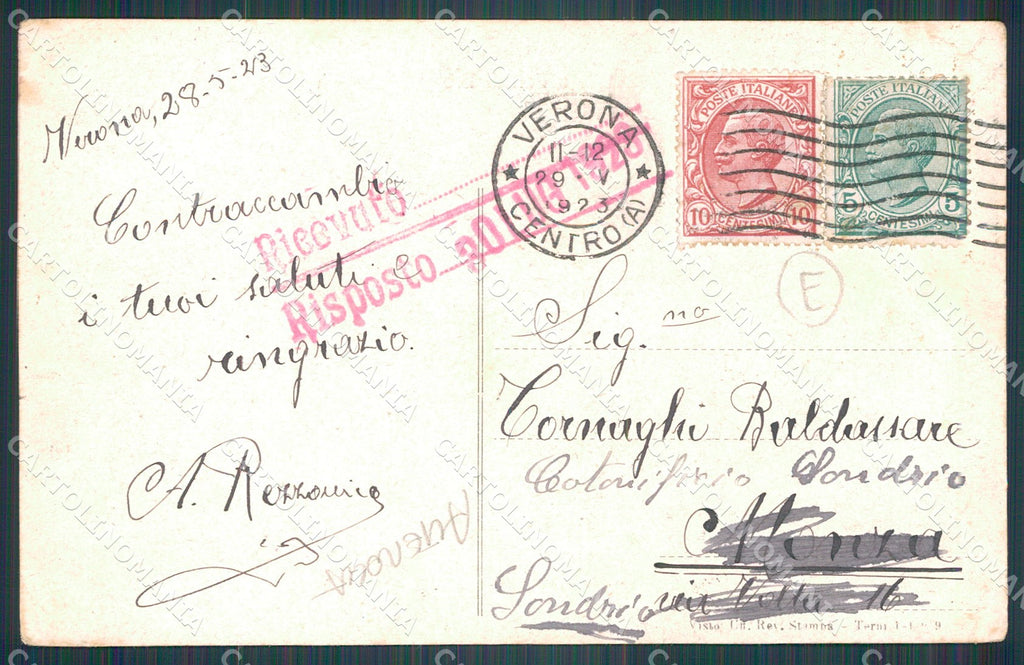 Verona, 28-5-23
Contraccambio
i tuoi saluti e
ringrazio.
A. Rezzonico
Ricevuto
Risposto
VERONA
11-12
29·V
923
CENTRO (A)
POSTE ITALIANE
10 CENTESIMI 10
POSTE ITALIANE
5 CENTESIMI 5
E
Sig.no
Cornaghi Baldassare
Cotonificio Sondrio
Monza
Sondrio via Volta 16
Visto Uff. Rev. Stampa - Terni
CARTOLINOMANIA